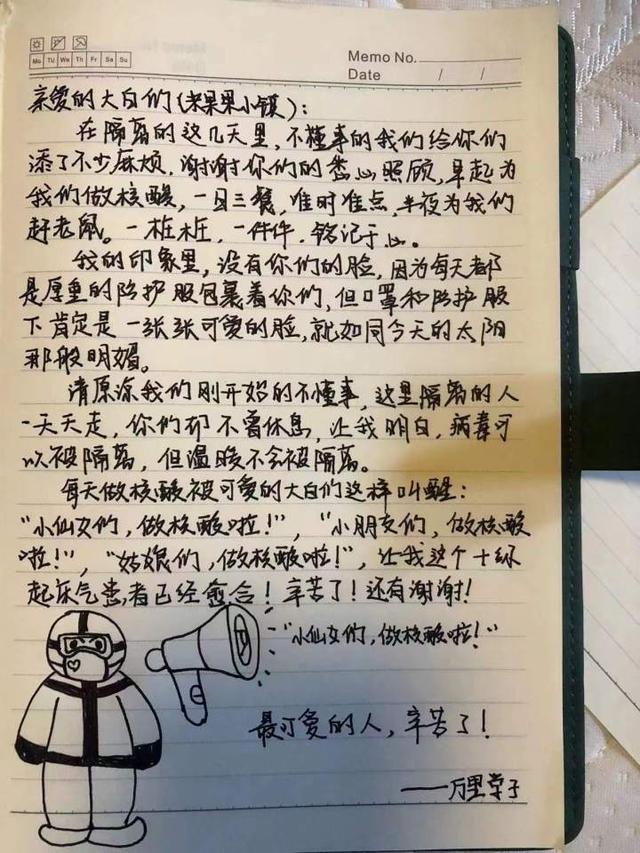 Memo No.
Date / /
Mo Tu We Th Fr Sa Su
亲爱的大白们(米果果小镇):
在隔离的这几天里,不懂事的我们给你们
添了不少麻烦,谢谢你们的悉心照顾,早起为
我们做核酸,一日三餐,准时准点,半夜为我们
赶老鼠。一桩桩,一件件,铭记于心。
我的印象里,没有你们的脸,因为每天都
是厚重的防护服包裹着你们,但口罩和防护服
下肯定是一张张可爱的脸,就如同今天的太阳
那般明媚。
请原谅我们刚开始的不懂事,这里隔离的人
一天天走,你们却不曾休息,让我明白,病毒可
以被隔离,但温暖不会被隔离。
每天做核酸被可爱的大白们这样叫醒:
“小仙女们,做核酸啦!”,“小朋友们,做核酸
啦!”,“姑娘们,做核酸啦!”,让我这个十级
起床气患者已经愈合!辛苦了!还有谢谢!
“小仙女们,做核酸啦!”
最可爱的人,辛苦了!
——万里学子